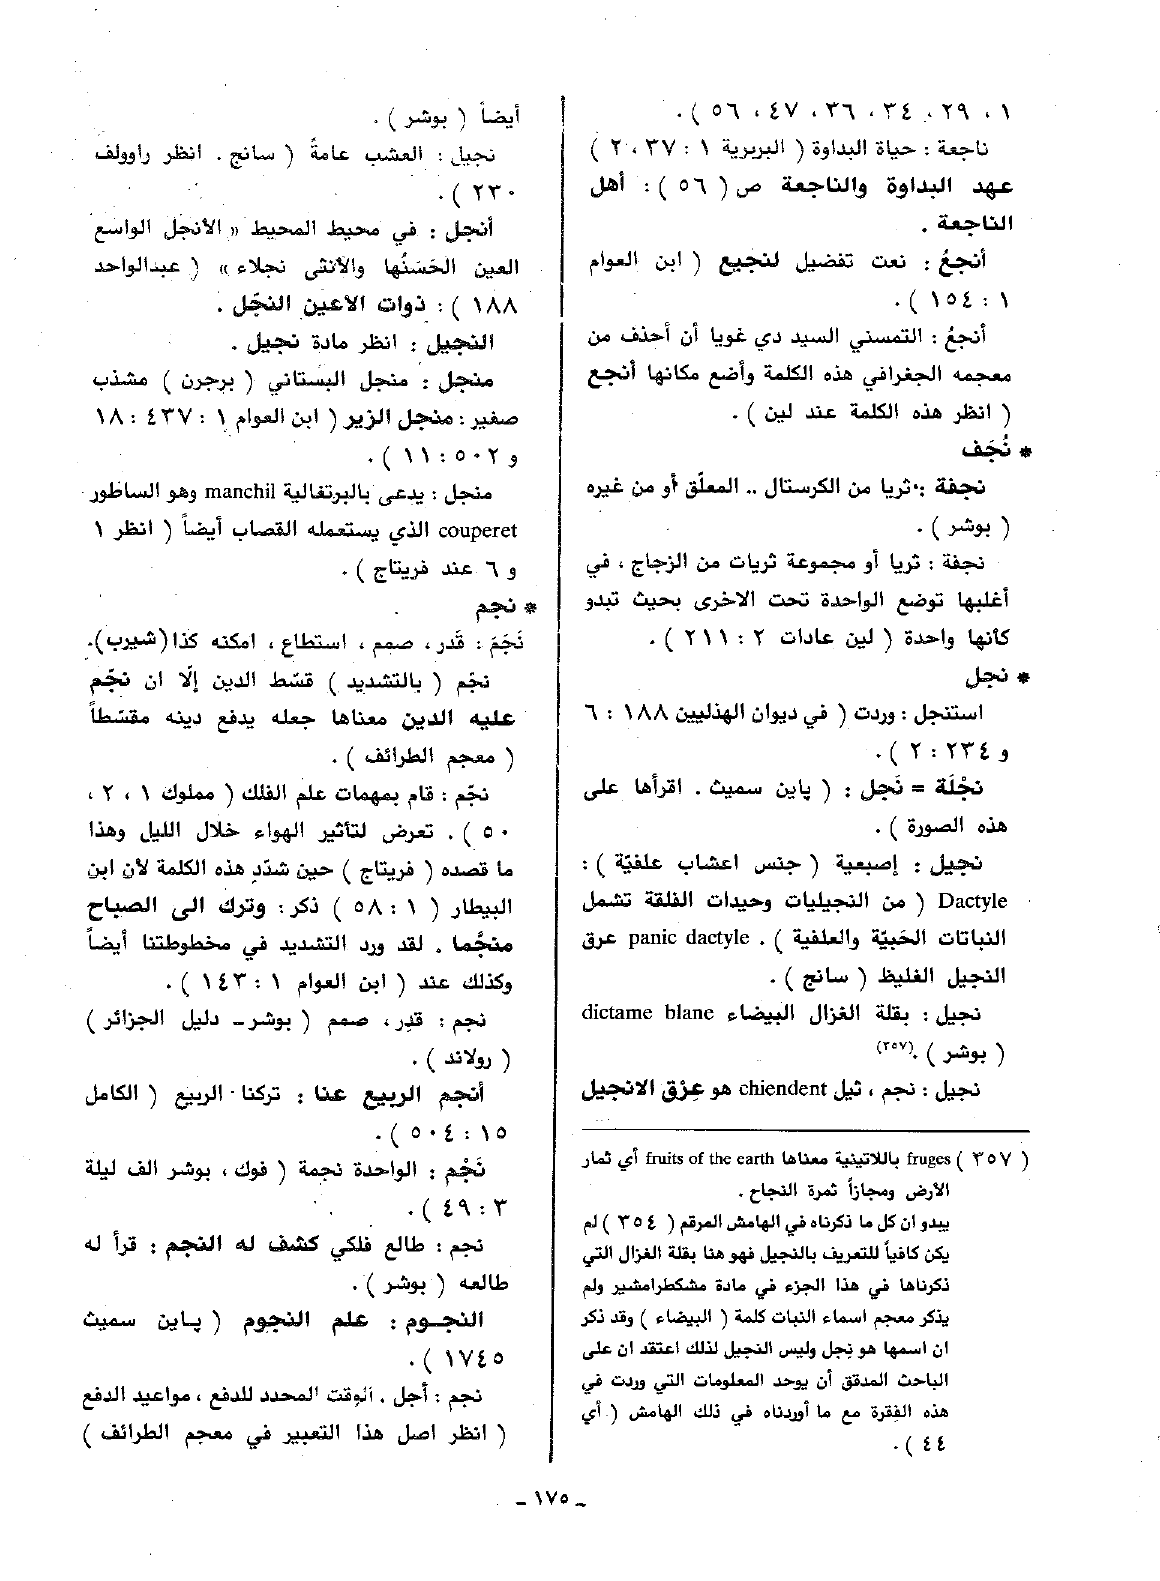 ١ ، ٢٩ ، ٣٤ ، ٣٦ ، ٤٧ ، ٥٦ ) .
ناجعة : حياة البداوة ( البربرية ١ : ٣٧ ، ٢ )
عهد البداوة والناجعة ص ( ٥٦ ) : أهل
الناجعة .
أنجعُ : نعت تفضيل لنجيع ( ابن العوام
١ : ١٥٤ ) .
أنجعُ : التمسني السيد دي غويا أن أحذف من
معجمه الجغرافي هذه الكلمة وأضع مكانها أنجع
( انظر هذه الكلمة عند لين ) .
* نُجَف
نجفة : ثريا من الكرستال .. المعلّق أو من غيره
( بوشر ) .
نجفة : ثريا أو مجموعة ثريات من الزجاج ، في
أغلبها توضع الواحدة تحت الاخرى بحيث تبدو
كأنها واحدة ( لين عادات ٢ : ٢١١ ) .
* نجل
استنجل : وردت ( في ديوان الهذليين ١٨٨ : ٦
و ٢٣٤ : ٢ ) .
نجْلَة = نَجل : ( پاين سميث . اقرأها على
هذه الصورة ) .
نجيل : إصبعية ( جنس اعشاب علفيّة ) :
Dactyle ( من النجيليات وحيدات الفلقة تشمل
النباتات الحَبيّة والعلفية ) . panic dactyle عرق
النجيل الغليظ ( سانج ) .
نجيل : بقلة الغزال البيضاء dictame blane
( بوشر ) .(٢٥٧)
نجيل : نجم ، ثيل chiendent هو عِرْق الانجيل
( ٢٥٧ ) fruges باللاتينية معناها fruits of the earth أي ثمار
الأرض ومجازاً ثمرة النجاح .
يبدو ان كل ما ذكرناه في الهامش المرقم ( ٢٥٤ ) لم
يكن كافياً للتعريف بالنجيل فهو هنا بقلة الغزال التي
ذكرناها في هذا الجزء في مادة مشكطرامشير ولم
يذكر معجم اسماء النبات كلمة ( البيضاء ) وقد ذكر
ان اسمها هو نجل وليس النجيل لذلك اعتقد ان على
الباحث المدقق أن يوحد المعلومات التي وردت في
هذه الفقرة مع ما أوردناه في ذلك الهامش ( أي
٤٤ ) .
أيضاً ( بوشر ) .
نجيل : العشب عامةً ( سانج . انظر راوولف
٢٣٠ ) .
أنجل : في محيط المحيط « الأنجل الواسع
العين الحَسَنُها والأنثى نجلاء » ( عبدالواحد
١٨٨ ) : ذوات الأعين النجّل .
النجيل : انظر مادة نجيل .
منجل : منجل البستاني ( برجرن ) مشذب
صغير : منجل الزير ( ابن العوام ١ : ٤٣٧ : ١٨
و ٥٠٢ : ١١ ) .
منجل : يدعى بالبرتغالية manchil وهو الساطور
couperet الذي يستعمله القصاب أيضاً ( انظر ١
و ٦ عند فريتاج ) .
* نجم
نَجَمَ : قَدر ، صمم ، استطاع ، امكنه كذا (شيرب).
نجّم ( بالتشديد ) قسّط الدين إلّا ان نجّم
عليه الدين معناها جعله يدفع دينه مقسّطاً
( معجم الطرائف ) .
نجّم : قام بمهمات علم الفلك ( مملوك ١ ، ٢ ،
٥٠ ) . تعرض لتأثير الهواء خلال الليل وهذا
ما قصده ( فريتاج ) حين شدّد هذه الكلمة لأن ابن
البيطار ( ١ : ٥٨ ) ذكر : وترك الى الصباح
منجُما . لقد ورد التشديد في مخطوطتنا أيضاً
وكذلك عند ( ابن العوام ١ : ١٤٣ ) .
نجم : قدر ، صمم ( بوشر ـ دليل الجزائر )
( رولاند ) .
أنجم الربيع عنا : تركنا الربيع ( الكامل
٥٠٤ : ١٥ ) .
نَجْم : الواحدة نجمة ( فوك ، بوشر الف ليلة
٣ : ٤٩ ) .
نجم : طالع فلكي كشف له النجم : قرأ له
طالعه ( بوشر ) .
النجـوم : علم النجوم ( پاين سميث
١٧٤٥ ) .
نجم : أجل . الوقت المحدد للدفع ، مواعيد الدفع
( انظر اصل هذا التعبير في معجم الطرائف )
ـ ١٧٥ ـ